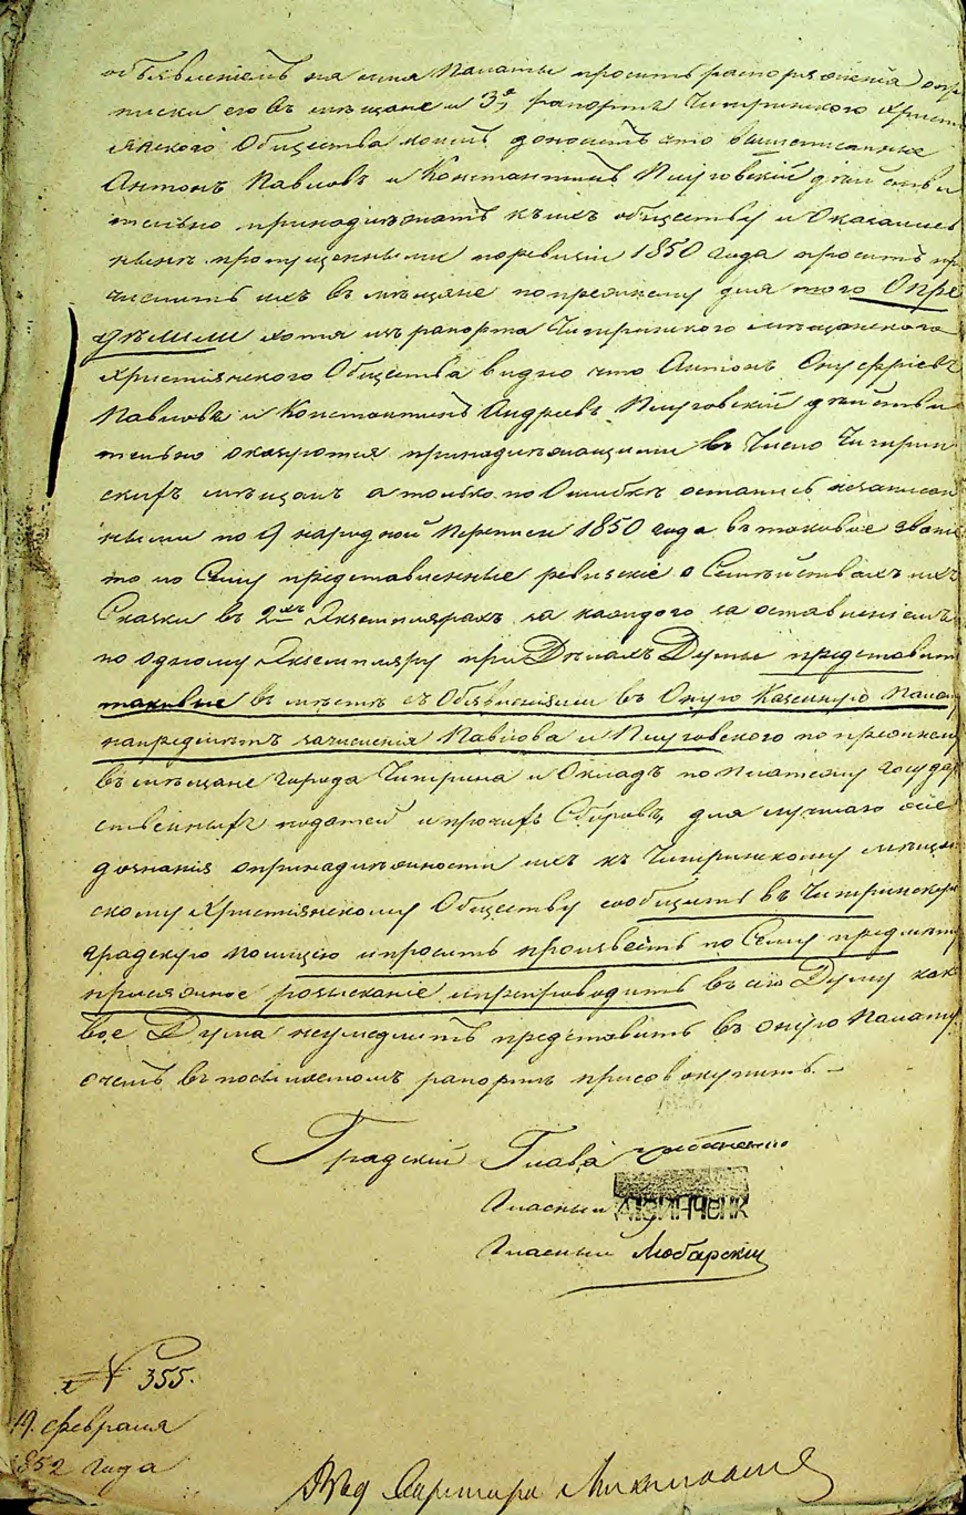 объявленіемъ на имя Палаты проситъ распоряженія о при
писки его въ мѣщане и 3е, рапорта Чигиринского Христі
янского Общества коимъ доноситъ что вышеписанные
Антонъ Павловъ и Константинъ Плуговскій дѣйстви
тельно принадлѣжатъ къ ихъ обществу и Оказались
нынѣ пропущенными по ревизіи 1850 года проситъ при
числить ихъ въ мѣщане по прежнему для того Опре
дѣлили хотя изъ рапорта Чигиринского мѣщанского
Христіянского Общества видно что Антонъ Онуфріевъ
Павловъ и Константинъ Андреевъ Плуговскій дѣйстви
тельно окажутся принадлежащими въ Число Чигирин
скихъ мѣщанъ а только по Ошибкѣ остались незаписан
ными по 9 народной Переписи 1850 года въ таковое званіе
то по Сему представленные ревизскіе о Семѣйствахъ ихъ
Сказки въ 2хъ Экземплярахъ за каждого за оставленіемъ
по одному Экземпляру при Дѣлахъ Думы представить
таковые въ мѣстѣ съ Объявленіями въ Оную Казенную Палату
на предметъ зачисленія Павлова и Плуговского по прежнему
въ мѣщане города Чигрина и Окладъ по платежу государ
ственныхъ податей и прочихъ Сборовъ, для лучшаго же
дознанія о принадлежности ихъ къ Чигиринскому мѣщан
скому Христіянскому Обществу сообщить въ Чигиринскую
градскую полицію и просить произвесть по Сему предмету
присяжное розысканіе и препроводить въ сію Думу како
вое Дума неумедлитъ представить въ оную Палату
о чемъ въ послѣдствіи рапортъ присовокупить. —
Градскій Глава
Гласный
Гласный Любарскій
№ 355.
19. февраля
1852 года
Секретаря